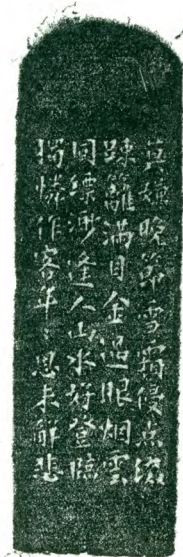 莫嫌晚節雪霜侵点綴
踈籬滿目金過眼烟雲
同縹緲逢人山水好登臨
獨憐作客年々思未解悲